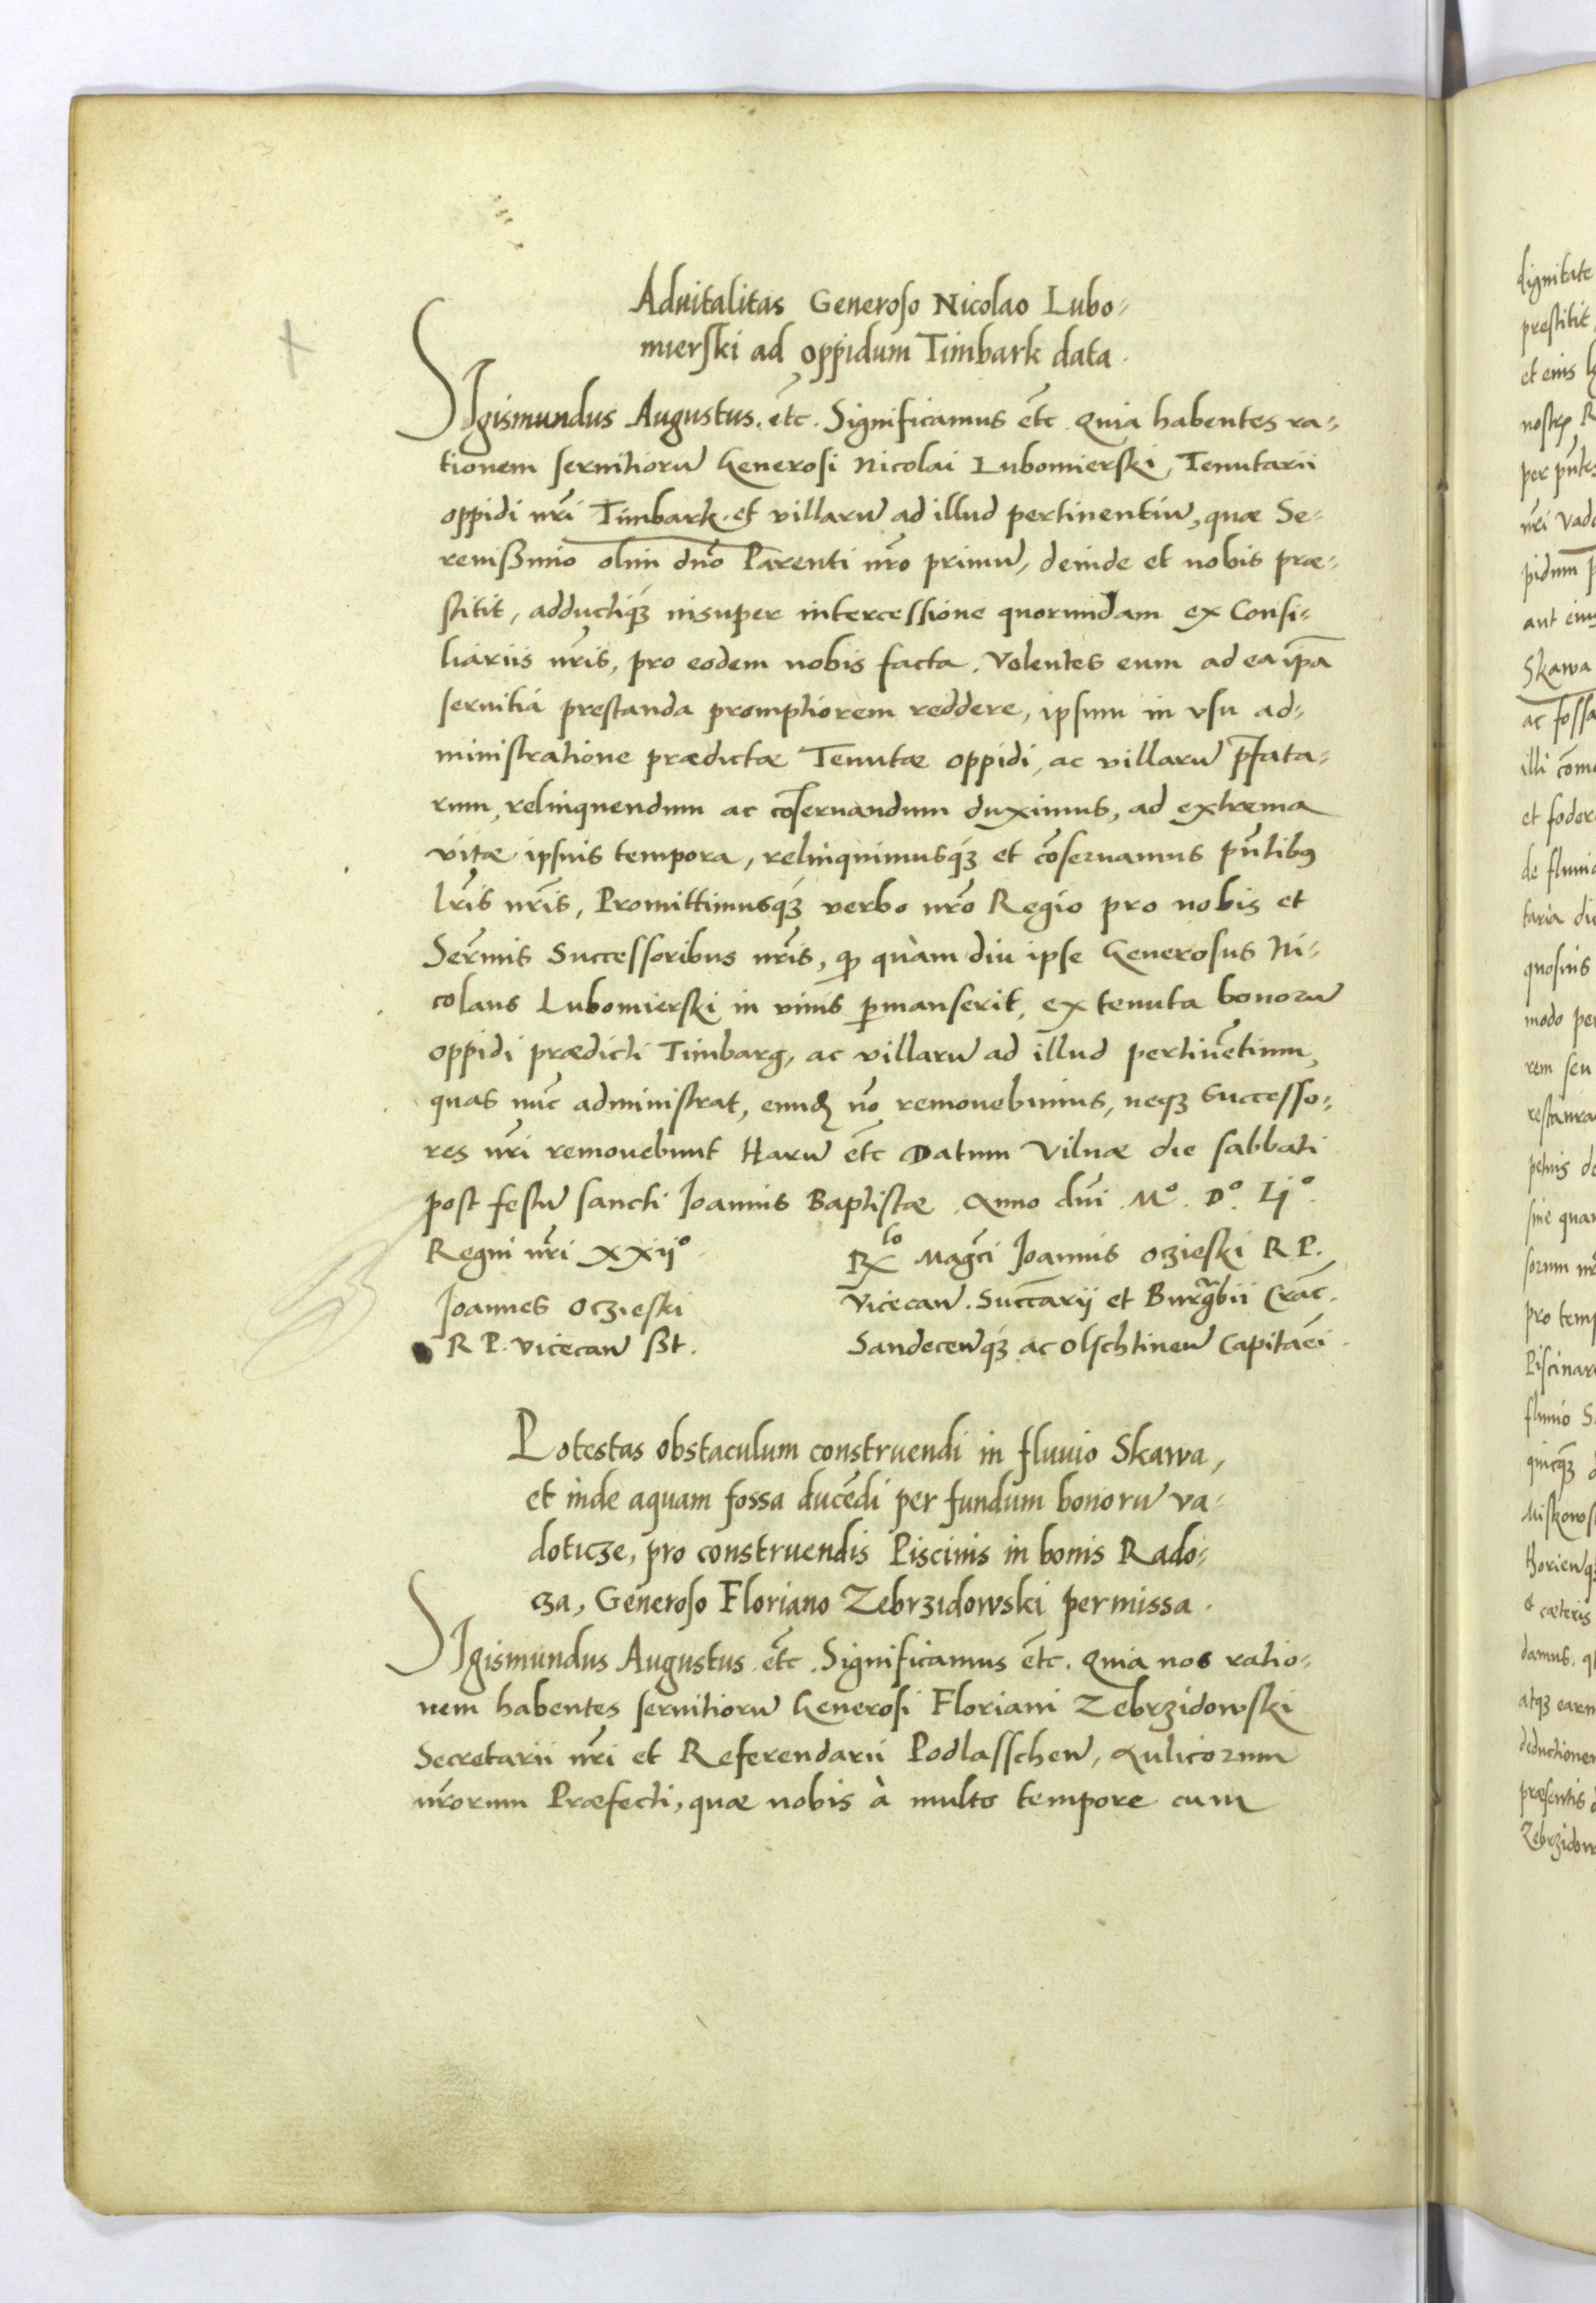 Aduitalitas Generoso Nicolao Lubo-
mierski ad oppidum Timbark data.
SIgismundus Augustus. etc. Significamus etc Quia habentes ra-
tionem seruitioru Generosi Nicolai Lubomierski, Tenutarii
oppidi nri Timbark. et villaru ad illud pertinentiu, quæ Se-
renissimo olim dno Parenti nro primu, deinde et nobis præ-
stitit, adductiq3 insuper intercessione quorundam ex Consi-
liariis nris, pro eodem nobis facta. Volentes eum ad ea ipa
seruitia prestanda promptiorem reddere, ipsum in vsu ad-
ministratione prædictæ Tenutæ oppidi, ac villaru pfata-
rum, relinquendum ac coseruandum duximus, ad extrema
vitæ ipsius tempora, relinquimusq3 et coseruamus pntibus
lris nris, Promittimusq3 verbo nro Regio pro nobis et
Sermis Successoribus nris, q quàm diu ipse Generosus Ni-
colaus Lubomierski in viuis pmanserit, ex tenuta bonoru
oppidi prædicti Timbarg, ac villaru ad illud pertinetium,
quas nuc administrat, eund no remouebimus, neq3 Successo-
res nri remouebunt Haru etc Datum Vilnæ die sabbati
post festu sancti Joannis Baptistæ. Anno dni. Mo. Do. Lijo.
Regni nri XXijo.
Joannes Oczieski
R P. vicecan sst.
Rlo Magci Joannis Oczieski R. P.
Vicecan. Succarij et Burgrabii Crac.
Sandecenq3 ac Olschtinen Capitaei.
Potestas obstaculum construendi in fluuio Skawa,
et inde aquam fossa ducedi per fundum bonoru va-
doticze, pro construendis Piscinis in bonis Rado-
cza, Generoso Floriano Zebrzidowski permissa.
SIgismundus Augustus. etc. Significamus etc. Quia nos ratio-
nem habentes seruitioru Generosi Floriani Zebrzidowski
Secretarii nri et Referendarii Podlasschen, Aulicorum
nrorum Præfecti, quæ nobis à multo tempore cum